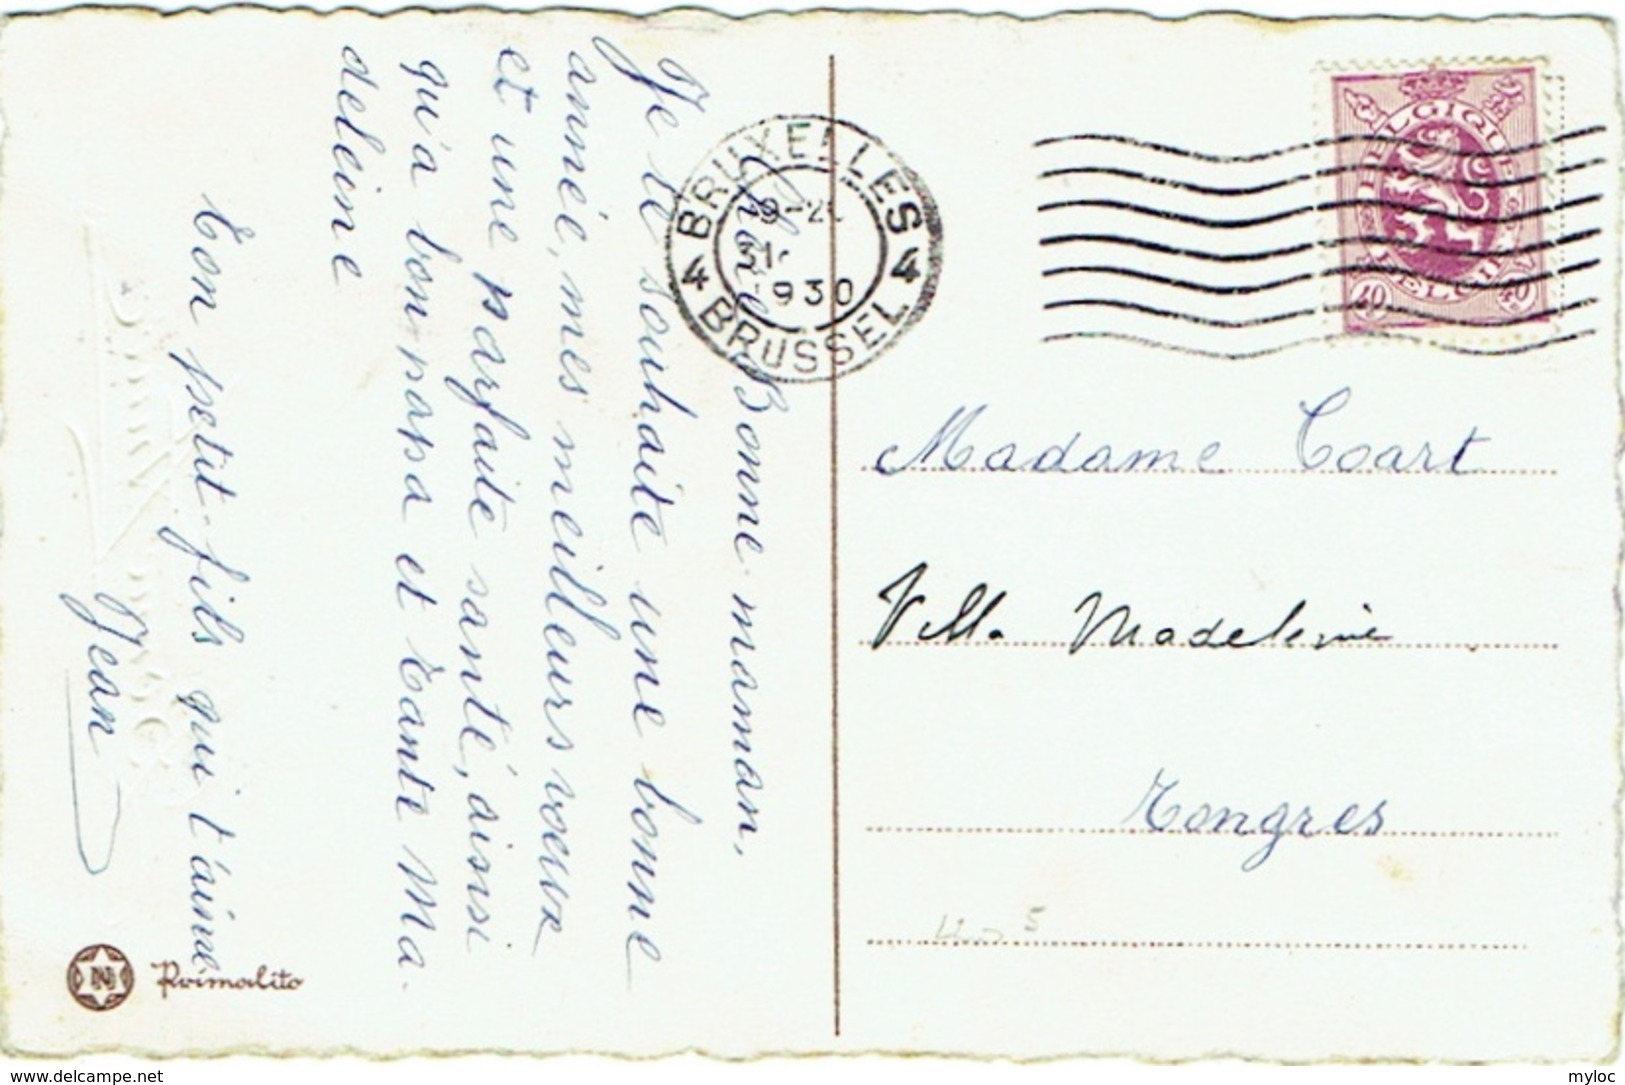 Chère Bonne maman,
Je te souhaite une bonne
année, mes meilleurs voeux
et une parfaite santé, ainsi
qu'à bon papa et Tante Ma
deleine
Ton petit-fils qui t'aime
Jean
Primalito
N
BRUXELLES
4 4
31
1930
BRUSSEL
BELGIQUE
BELGIE
40 40
Madame Coart
Villa Madeleine
Tongres
5
www.delcampe.net
myloc